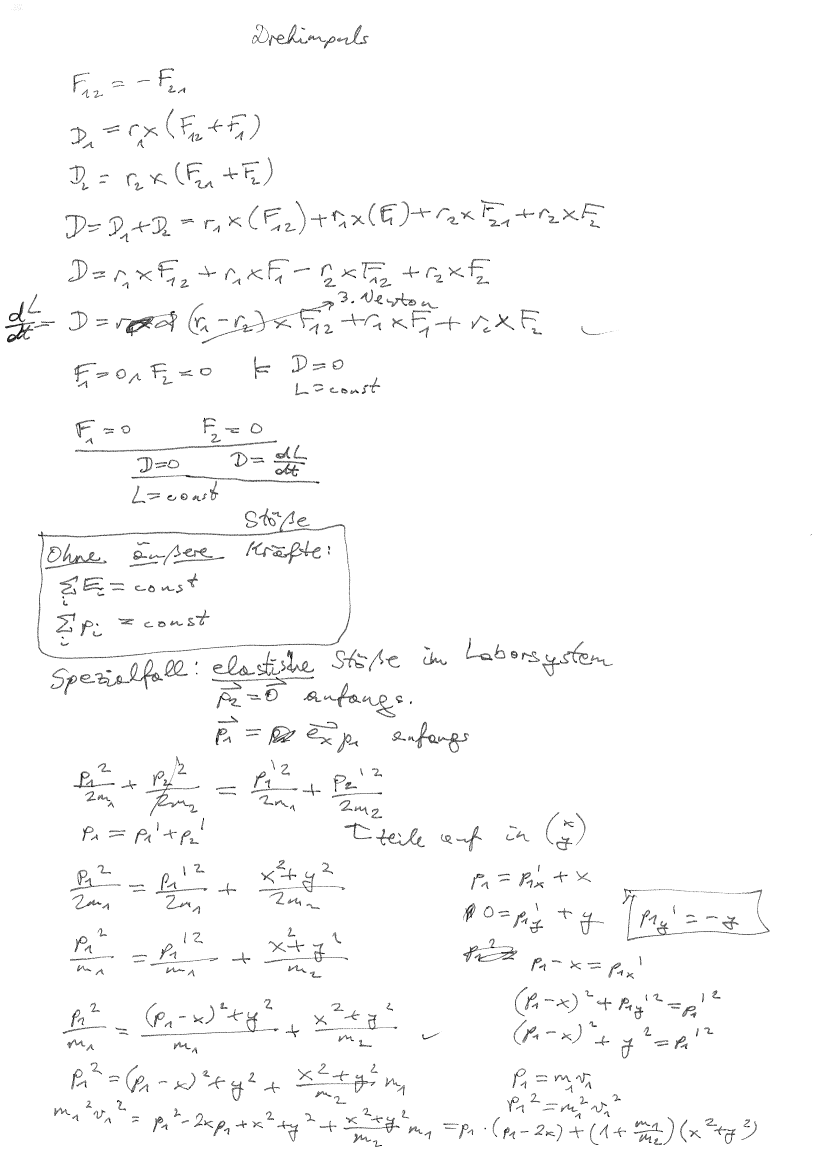 Drehimpuls
F₁₂ = − F₂₁
D₁ = r₁ × (F₁₂ + F₁)
D₂ = r₂ × (F₂₁ + F₂)
D = D₁ + D₂ = r₁ × (F₁₂) + r₁ × (F₁) + r₂ × F₂₁ + r₂ × F₂
D = r₁ × F₁₂ + r₁ × F₁ − r₂ × F₁₂ + r₂ × F₂
3. Newton
dL/dt = D = (r₁ − r₂) × F₁₂ + r₁ × F₁ + r₂ × F₂
F₁ = 0 ∧ F₂ = 0 ⊨ D = 0
L = const
F₁ = 0 F₂ = 0
D = 0 D = dL/dt
L = const
Stöße
Ohne äußere Kräfte:
∑ᵢ Eᵢ = const
∑ᵢ pᵢ = const
Spezialfall: elastische Stöße im Laborsystem
p⃗₂ = 0⃗ anfangs.
p⃗₁ = e⃗ₓ p₁ anfangs
p₁²/2m₁ + p₂²/2m₂ = p₁'²/2m₁ + p₂'²/2m₂
p₁ = p₁' + p₂'
↑ teile auf in (x y)
p₁²/2m₁ = p₁'²/2m₁ + (x² + y²)/2m₂
p₁ = p₁ₓ' + x
0 = p₁y' + y
p₁y' = −y
p₁²/m₁ = p₁'²/m₁ + (x² + y²)/m₂
p₁ − x = p₁ₓ'
(p₁ − x)² + p₁y'² = p₁'²
p₁²/m₁ = ((p₁ − x)² + y²)/m₁ + (x² + y²)/m₂
(p₁ − x)² + y² = p₁'²
p₁² = (p₁ − x)² + y² + (x² + y²)/m₂ · m₁
p₁ = m₁v₁
p₁² = m₁²v₁²
m₁²v₁² = p₁² − 2xp₁ + x² + y² + (x² + y²)/m₂ m₁ = p₁ · (p₁ − 2x) + (1 + m₁/m₂)(x² + y²)